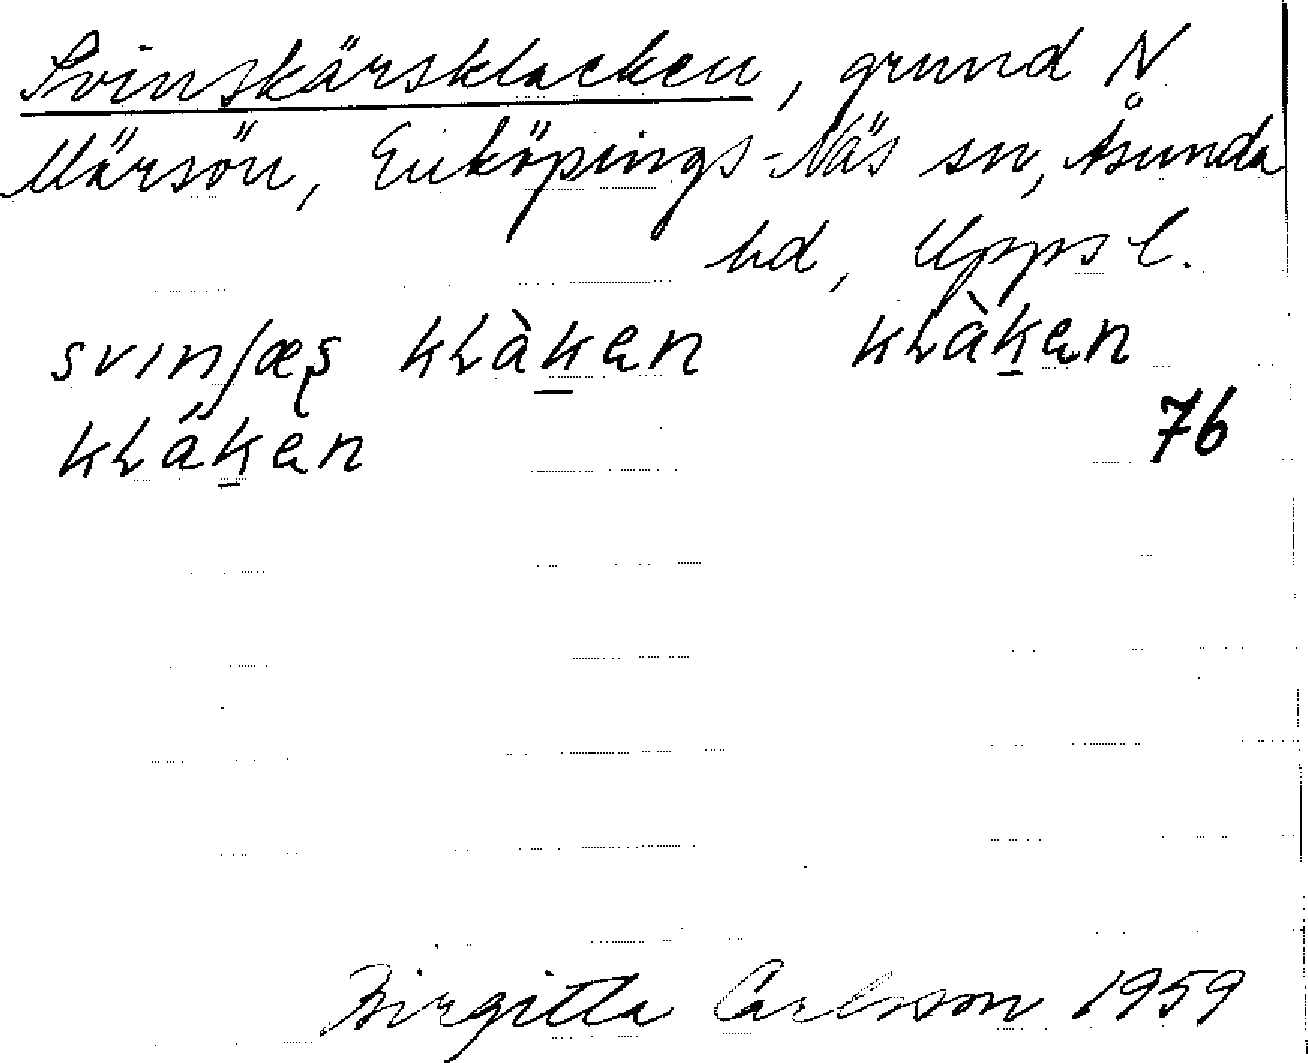 Svinskärsklacken, grund N
Märsön, Enköpings-Näs sn, Åsunda
hd, Upps l.
svinʃæș kLàḵen kLàḵen
kLáḵen 76
Birgitta Carlsson 1959